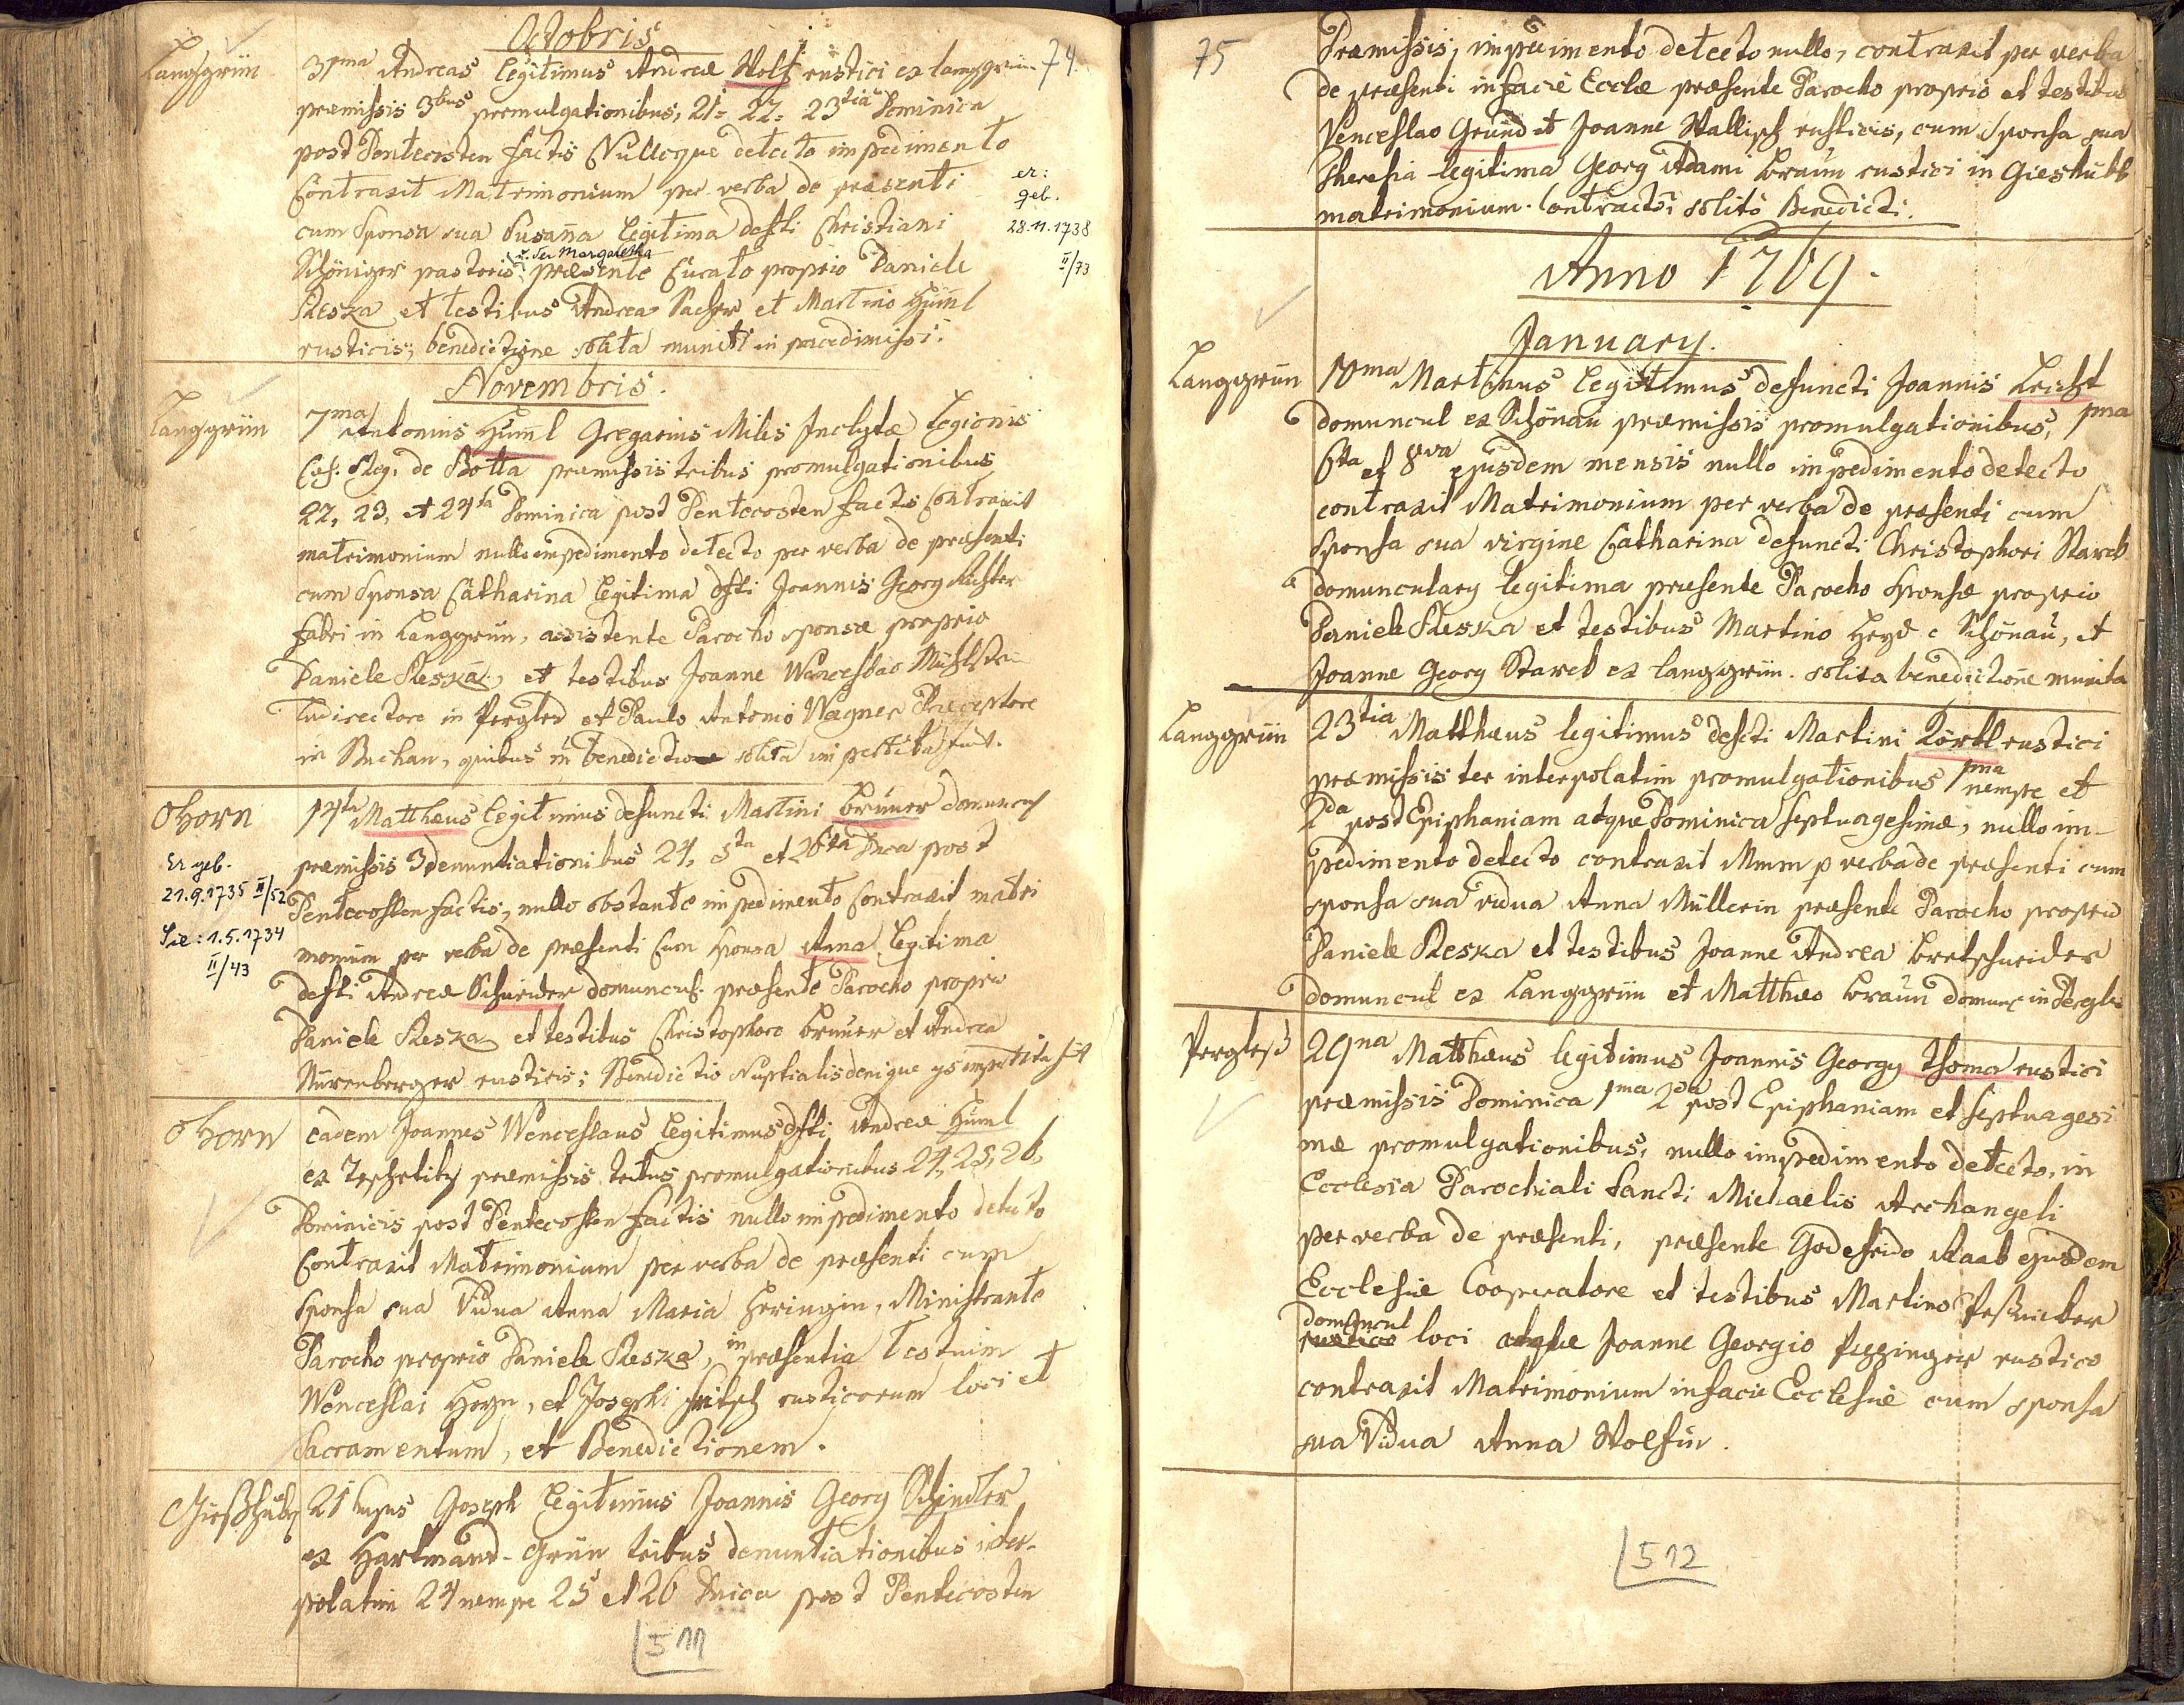 Octobris
74
Langgrün
31ma Andreas legitimus Andreæ Wolf rustici ex langgrün
præmissis 3bus promulgationibus, 21= 22= 23tia Dominica
post Pentecosten factis Nulloque detecto impedimento
Contraxit Matrimonium per verba de præsenti
cum Sponsa sua Susana legitima defti Christiani
Schöniger pastoris præsente Curato proprio Daniele
u. der Margaretha
er:
geb.
28.11.1738
II/73
Reska et testibus Andrea Sacher et Martino Huml
rusticis, benedictione solita muniti in pace dimissi.
Novembris.
Langgrün
7ma Antonius Huml Gregarius Miles Inclytæ Legionis
Cæs: Reg. de Botta præmissis tribus promulgationibus
22, 23, et 24ta Dominica post Pentecosten factis Contraxit
matrimonium nullo impedimento detecto per verba de præsenti
cum Sponsa Catharina legitima dfti Joannis Georg Richter
fabri in Langgrün, assistente Parocho sponsæ proprio
Daniele Reska, et testibus Joanne Wenceslao Mühlstein
Ludirectore in Pergles et Paulo Antonio Wagner Præceptore
in Buchau, quibus in benedictione solita impertita fuit.
Ohorn
14ta Matthæus legitimus defuncti Martini Bruner domuncul
præmissis 3 denuntiationibus 24, 5ta et 26ta Dnca post
Er geb.
21.9.1735 II/52
Sie: 1.5.1734
II/43
Pentecosten factis, nullo obstante impedimento Contraxit matri
monium per verba de præsenti Cum sponsa Anna legitima
defti Andreæ Schneider domuncul. præsente Parocho proprio
Daniele Reska et testibus Christophoro Bruner et Andrea
Nürenberger rusticis; Benedictio Nuptialis denique ys impertita fuit
Ohorn
eadem Joannes Wenceslaus legitimus dfti Andreæ Huml
ex præmissis tribus promulgationibus 24, 25, 26,
Dominicis post Pentecosten factis nullo impedimento detecto
Contraxit Matrimonium per verba de præsenti cum
Sponsa sua Vidua Anna Maria Heringin, Ministrante
Parocho proprio Daniele Reska, in præsentia Testium
Wenceslai Heyn, et Josephi Fritsch rusticorum loci et
Sacramentum, et Benedictionem.
Gießhübl
21 hujus Joseph legitimus Joannis Georg Schindler
ex Hartmans-Grün tribus denuntiationibus inter-
polatim 24 nempe 25 et 26 Dnica post Pentecosten
511
75
Præmissis, impedimento detecto nullo, contraxit per verba
de præsenti in facie Ecclæ præsente Parocho proprio et testibus
Venceslao Gründ et Joanne Wallisch rusticis, cum Sponsa sua
Theresia legitima Georg Adami Braun rustici in Gieshübl
matrimonium. Contracto solito Benedicti.
Anno 1769.
January.
Langgrün
10ma Martinus legitimus defuncti Joannis Leicht
domuncul ex Schönau præmissis promulgationibus, 1ma
6ta et 8va ejusdem mensis nullo impedimento detecto
contraxit Matrimonium per verba de præsenti cum
Sponsa sua virgine Catharina defuncti Christophori Starck
domunculary legitima præsente Parocho Sponsæ proprio
Daniele Reska et testibus Martino Heyd e Schönau, et
Joanne Georg Starck ex langgrün. solita benedictione munita
Langgrün
23tia Matthæus legitimus defcti Martini Körtl rustici
præmissis ter interpolatim promulgationibus 1ma nempe et
2da post Epiphaniam atque Dominica Septuagesimæ, nullo im-
pedimento detecto contraxit Mmm p verba de præsenti cum
sponsa sua vidua Anna Müllerin præsente Parocho proprio
Daniele Reska et testibus Joanne Andrea Bretschneider
domuncul ex Langgrün et Matthæo Braun domunc in Pergles
Pergleß
29na Matthæus legitimus Joannis Georgy Thoma rustici
præmissis Dominica 1ma 2da post Epiphaniam et Septuagesi
mæ promulgationibus, nullo impedimento detecto, in
Ecclesia Parochiali Sancti Michaelis Archangeli
per verba de præsenti, præsente Godefrido Raab ejusdem
Ecclesiæ Cooperatore et testibus Martino
domuncul
rustico loci atque Joanne Georgio rustico
contraxit Matrimonium in facie Ecclesiæ cum sponsa
sua Vidua Anna Wolfin.
512